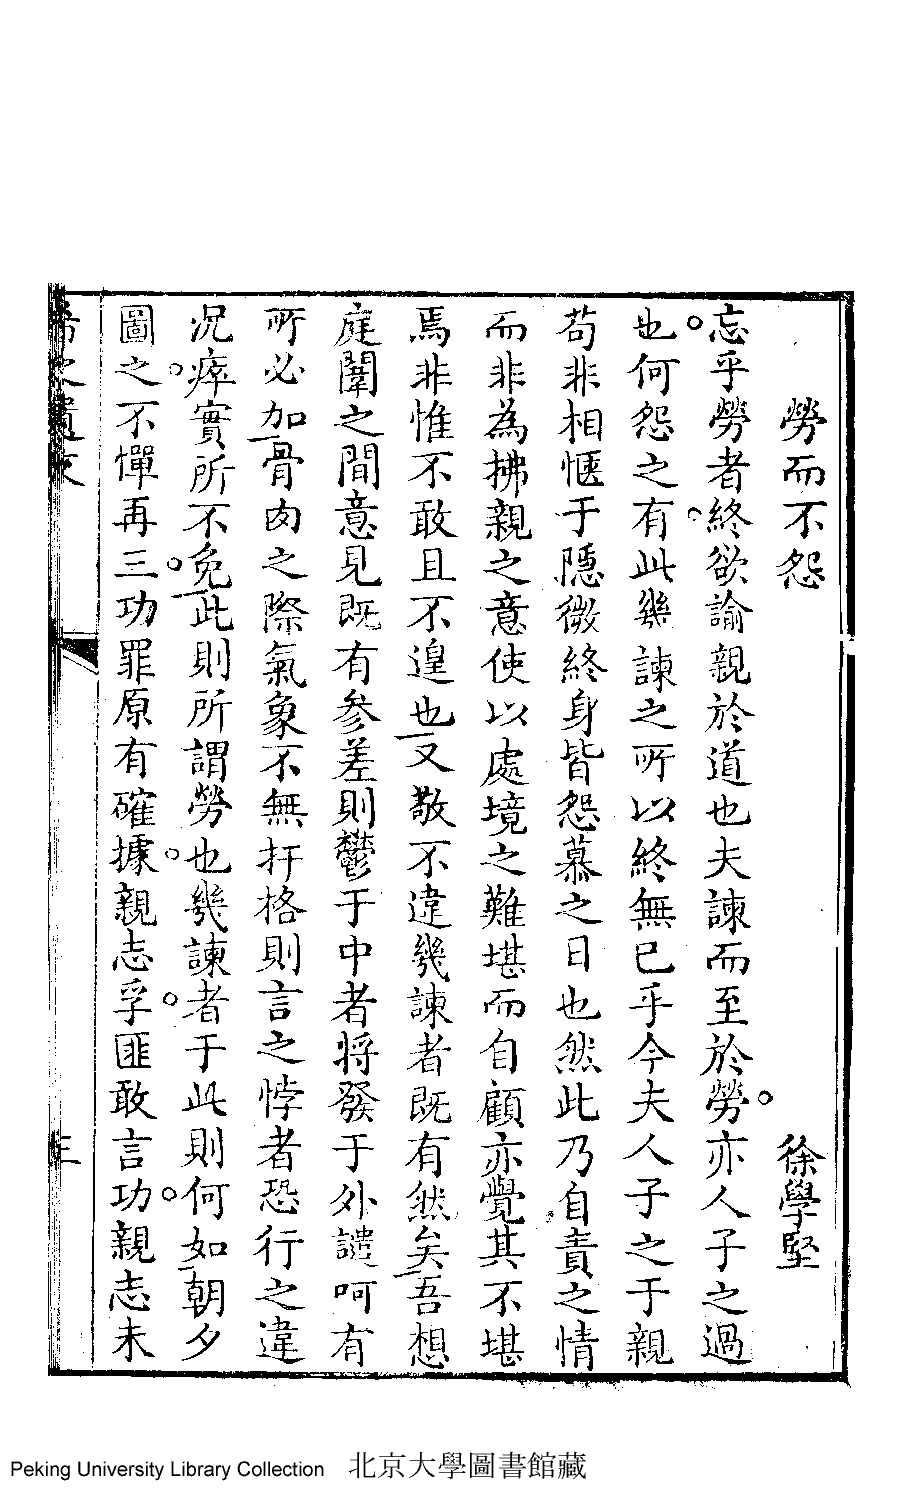 勞而不怨　徐學堅
忘乎勞者終欲諭親於道也夫諫而至於勞亦人子之過
也何怨之有此幾諫之所以終無已乎今夫人子之于親
苟非相愜于隱微終身皆怨慕之日也然此乃自責之情
而非為拂親之意使以處境之難堪而自顧亦覺其不堪
焉非惟不敢且不遑也又敬不違幾諫者既有然矣吾想
庭闈之間意見既有參差則鬱于中者將發于外譴呵有
所必加骨肉之際氣象不無扞格則言之悖者恐行之違
況瘁實所不免此則所謂勞也幾諫者于此則何如朝夕
圖之不憚再三功罪原有確據親志孚匪敢言功親志未
三
Peking University Library Collection 北京大學圖書館藏